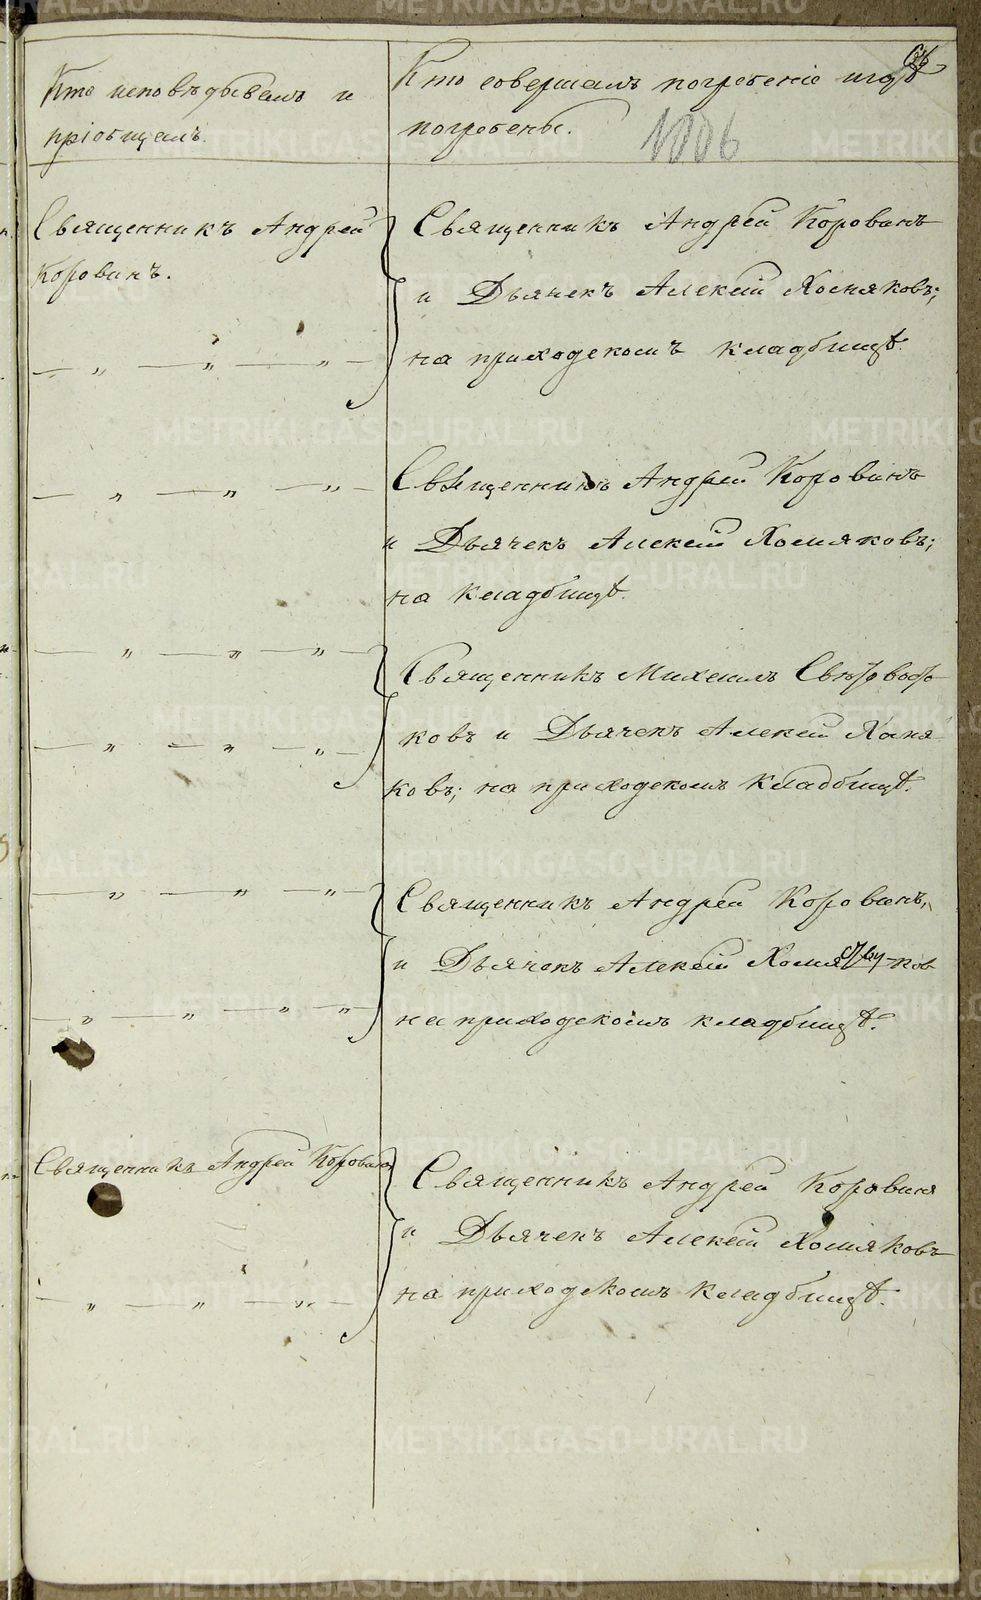 Кто исповѣдывалъ и
пріобщалъ.
Кто совершалъ погребеніе и гдѣ
погребены.
Священникъ Андрей
Коровинъ.
— „ — „ — „ —
Священникъ Андрей Коровинъ
и Дьячекъ Алексѣй Хомяковъ;
на приходскомъ кладбищѣ.
— „ — „ — „ —
Священникъ Андрей Коровинъ
и Дьячекъ Алексѣй Хомяковъ;
на кладбищѣ.
— „ — „ — „ —
— „ — „ — „ —
Священникъ Михаилъ
ковъ и Дьячекъ Алексѣй Хомя
ковъ; на приходскомъ кладбищѣ.
— „ — „ — „ —
— „ — „ — „ —
Священникъ Андрей Коровинъ,
и Дьячекъ Алексѣй Хомя ков
на приходскомъ кладбищѣ.
Священникъ Андрей Коровинъ
— „ — „ — „ —
Священникъ Андрей Коровинъ
и Дьячекъ Алексѣй Хомяковъ
на приходскомъ кладбищѣ.
METRIKI.GASO-URAL.RU